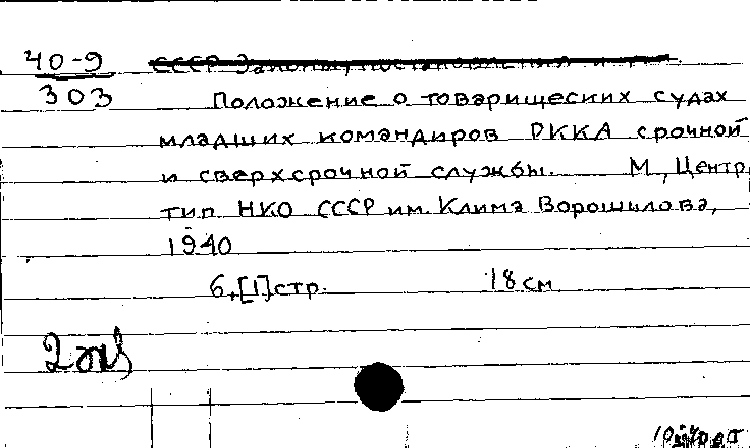 40-9
303
СССР Законы, постановления и
Положение о товарищеских судах
младших командиров РККА срочной
и сверхсрочной службы. М, Центр.
тип НКО СССР им. Клима Ворошилова,
1940
6,[1]стр. 18 см